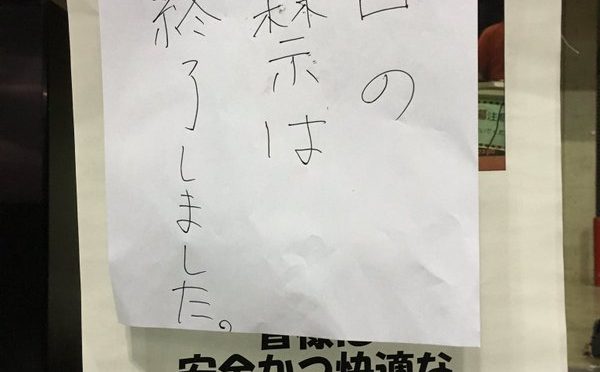 日の
は
終了しました。
皆様に
安全かつ快適な